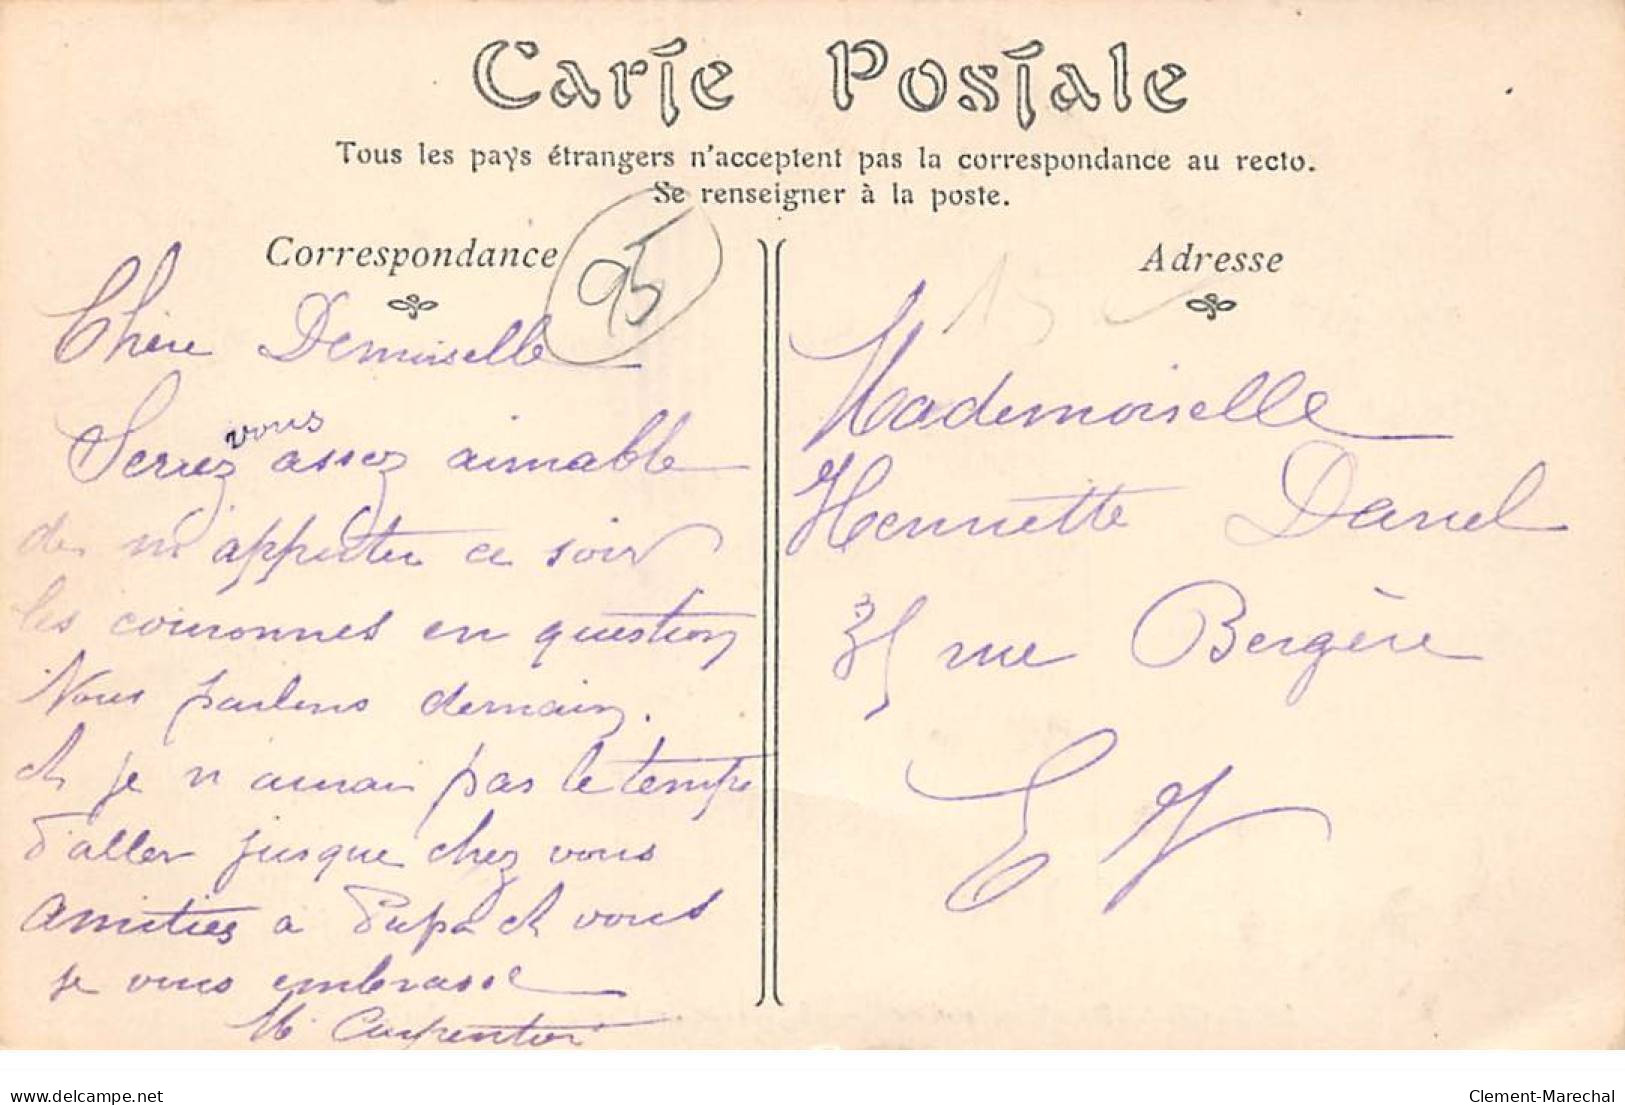 Carte Postale
Tous les pays étrangers n'acceptent pas la correspondance au recto.
Se renseigner à la poste.
Correspondance
95
Chère Demoiselle
Seriez vous assez aimable
de m'apporter ce soir
les couronnes en question
Nous parlons demain.
et je n'aurai pas le temps
d'aller jusque chez vous
amitiés a Papa et vous
je vous embrasse
M Carpentier
Adresse
Mademoiselle
Henriette Daniel
35 rue Bergère
E V
delcampe.net
Clement-Marechal